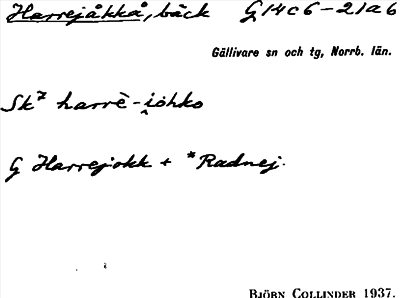 Harrejåkkå, bäck G 14c6-21a6
Gällivare sn och tg, Norrb. län.
Sk⁷ harrè-i̭ohko
G Harrejokk + *Radnej.
BJÖRN COLLINDER 1937.